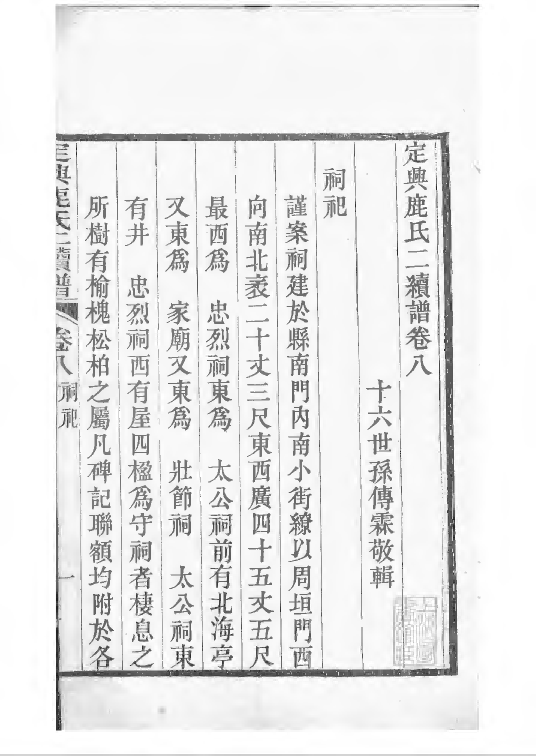 定興鹿氏二續譜卷八
十六世孫傳霖敬輯
祠祀
謹案祠建於縣南門內南小街繚以周垣門西
向南北袤二十丈三尺東西廣四十五丈五尺
最西爲　忠烈祠東爲　太公祠前有北海亭
又東爲　家廟又東爲　壯節祠　太公祠東
有井　忠烈祠西有屋四楹爲守祠者棲息之
所樹有榆槐松柏之屬凡碑記聯額均附於各
定興鹿氏二續譜　卷八　祠祀　一